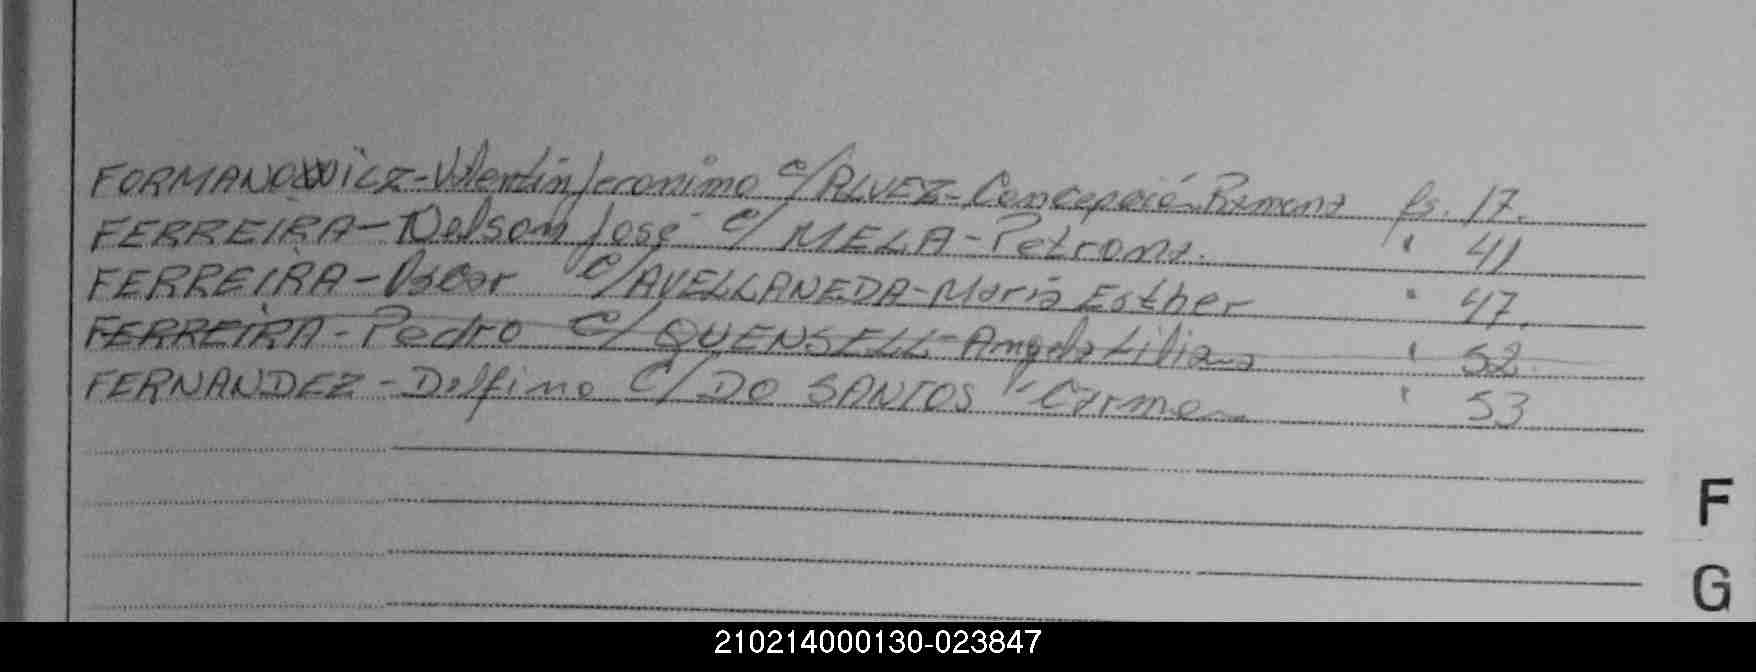 FORMANOWICZ-Valentin Jeronimo c/ALVEZ-Concepció Ramona fs. 17.
FERREIRA-Nelson José c/ MELA-Petrona. " 41
FERREIRA-Oscar c/AVELLANEDA-Maria Esther " 47.
FERREIRA-Pedro c/ QUENSELL-Angela Liliana " 52
FERNANDEZ-Delfino C/ DO SANTOS Carmen " 53
F
G
210214000130-023847